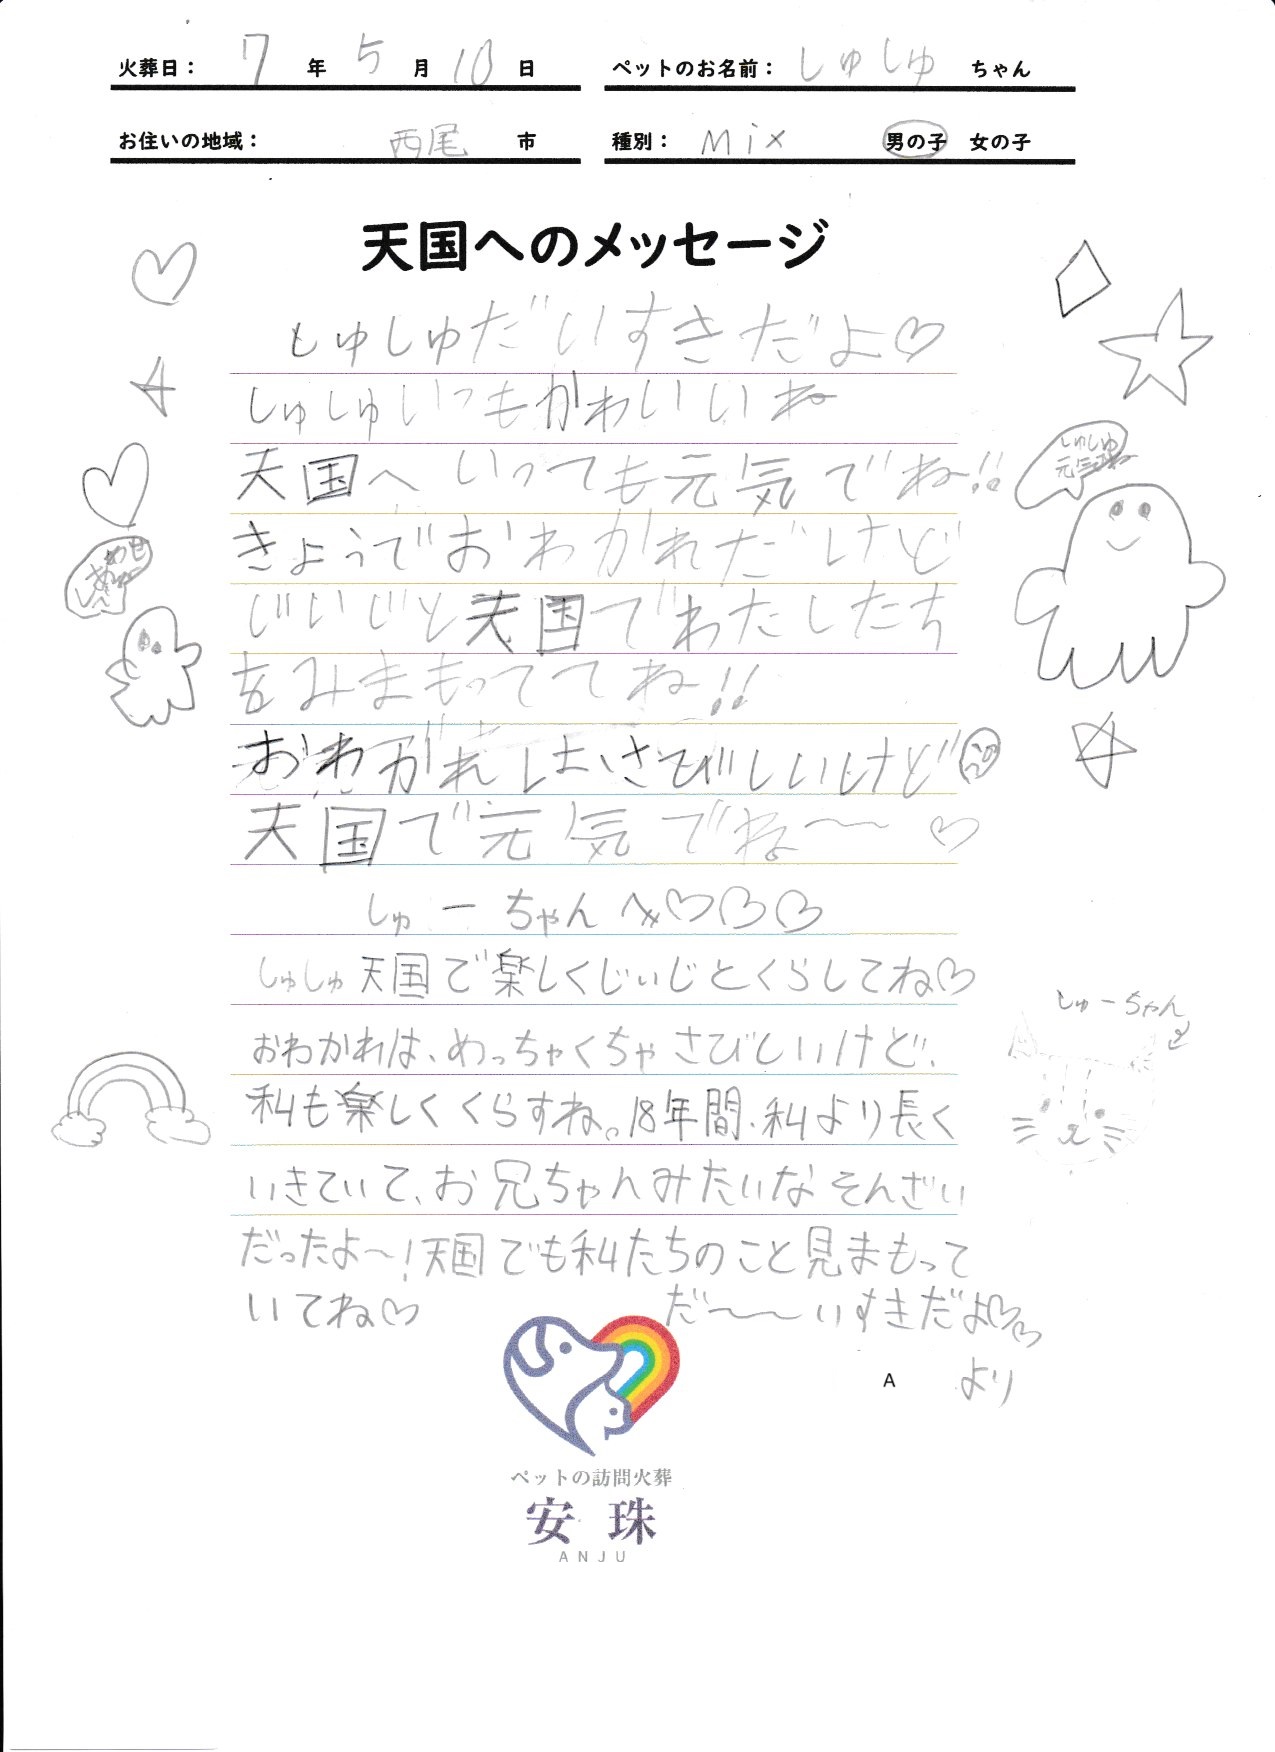 火葬日： 7 年 5 月 10 日
ペットのお名前： しゅしゅ ちゃん
お住いの地域： 西尾 市
種別： Mix 男の子 女の子
天国へのメッセージ
しゅしゅだいすきだよ♡
しゅしゅいつもかわいいね
天国へいっても元気でね!!
きょうでおわかれだけど
じいじと天国でわたしたち
をみまもっててね!!
おわかれはさびしいけど
天国で元気でね〜〜♡
しゅーちゃんへ♡♡♡
しゅしゅ天国で楽しくじぃじとくらしてね♡
おわかれは、めっちゃくちゃさびしいけど、
私も楽しくくらすね。18年間、私より長く
いきていて、お兄ちゃんみたいなそんざい
だったよ〜!天国でも私たちのこと見まもって
いてね♡ だ〜〜いすきだよ♡♡
A より
しゅしゅ
元気でね
しあわせ
しゅーちゃん
ペットの訪問火葬
安珠
ANJU